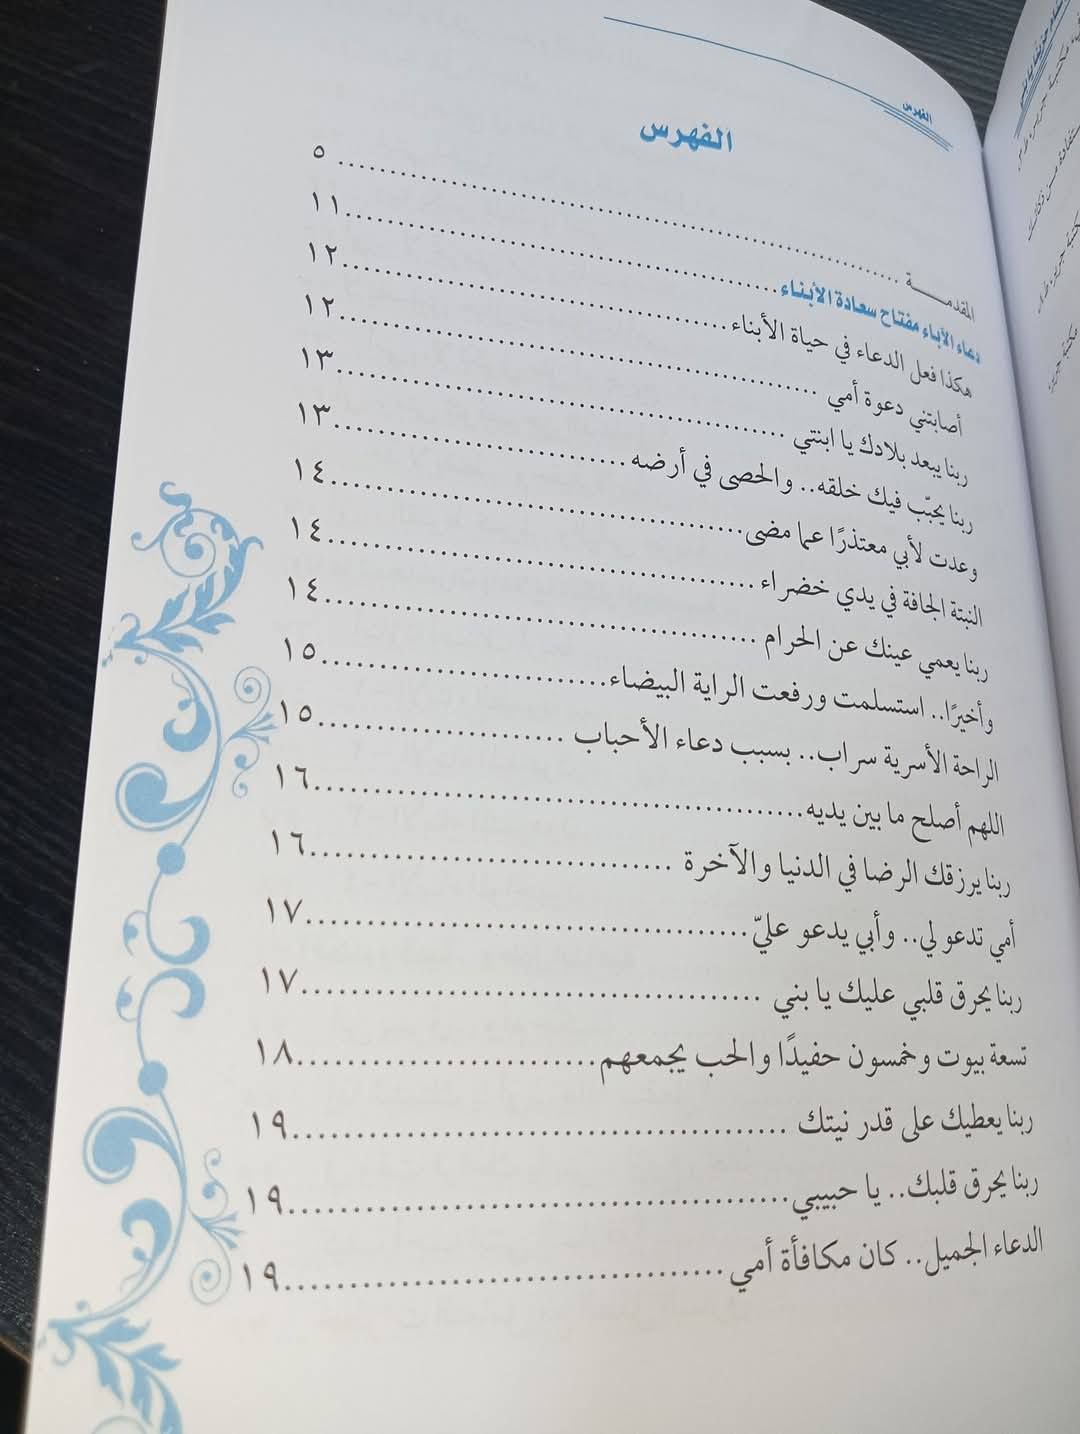 الفهرس
الفهرس
المقدمـــــة ........................................ ٥
دعاء الأباء مفتاح سعادة الأبناء........................................ ١١
هكذا فعل الدعاء في حياة الأبناء........................................ ١٢
أصابتني دعوة أمي ........................................ ١٢
ربنا يبعد بلادك يا ابنتي ........................................ ١٣
ربنا يحبّب فيك خلقه.. والحصى في أرضه........................................ ١٣
وعدت لأبي معتذرًا عما مضى........................................ ١٤
النبتة الجافة في يدي خضراء ........................................ ١٤
ربنا يعمي عينك عن الحرام ........................................ ١٤
وأخيرًا.. استسلمت ورفعت الراية البيضاء........................................ ١٥
الراحة الأسرية سراب.. بسبب دعاء الأحباب ........................................ ١٥
اللهم أصلح ما بين يديه........................................ ١٦
ربنا يرزقك الرضا في الدنيا والآخرة ........................................ ١٦
أمي تدعو لي.. وأبي يدعو عليّ........................................ ١٧
ربنا يحرق قلبي عليك يا بني ........................................ ١٧
تسعة بيوت وخمسون حفيدًا والحب يجمعهم........................................ ١٨
ربنا يعطيك على قدر نيتك ........................................ ١٩
ربنا يحرق قلبك.. يا حبيبي........................................ ١٩
الدعاء الجميل.. كان مكافأة أمي ........................................ ١٩